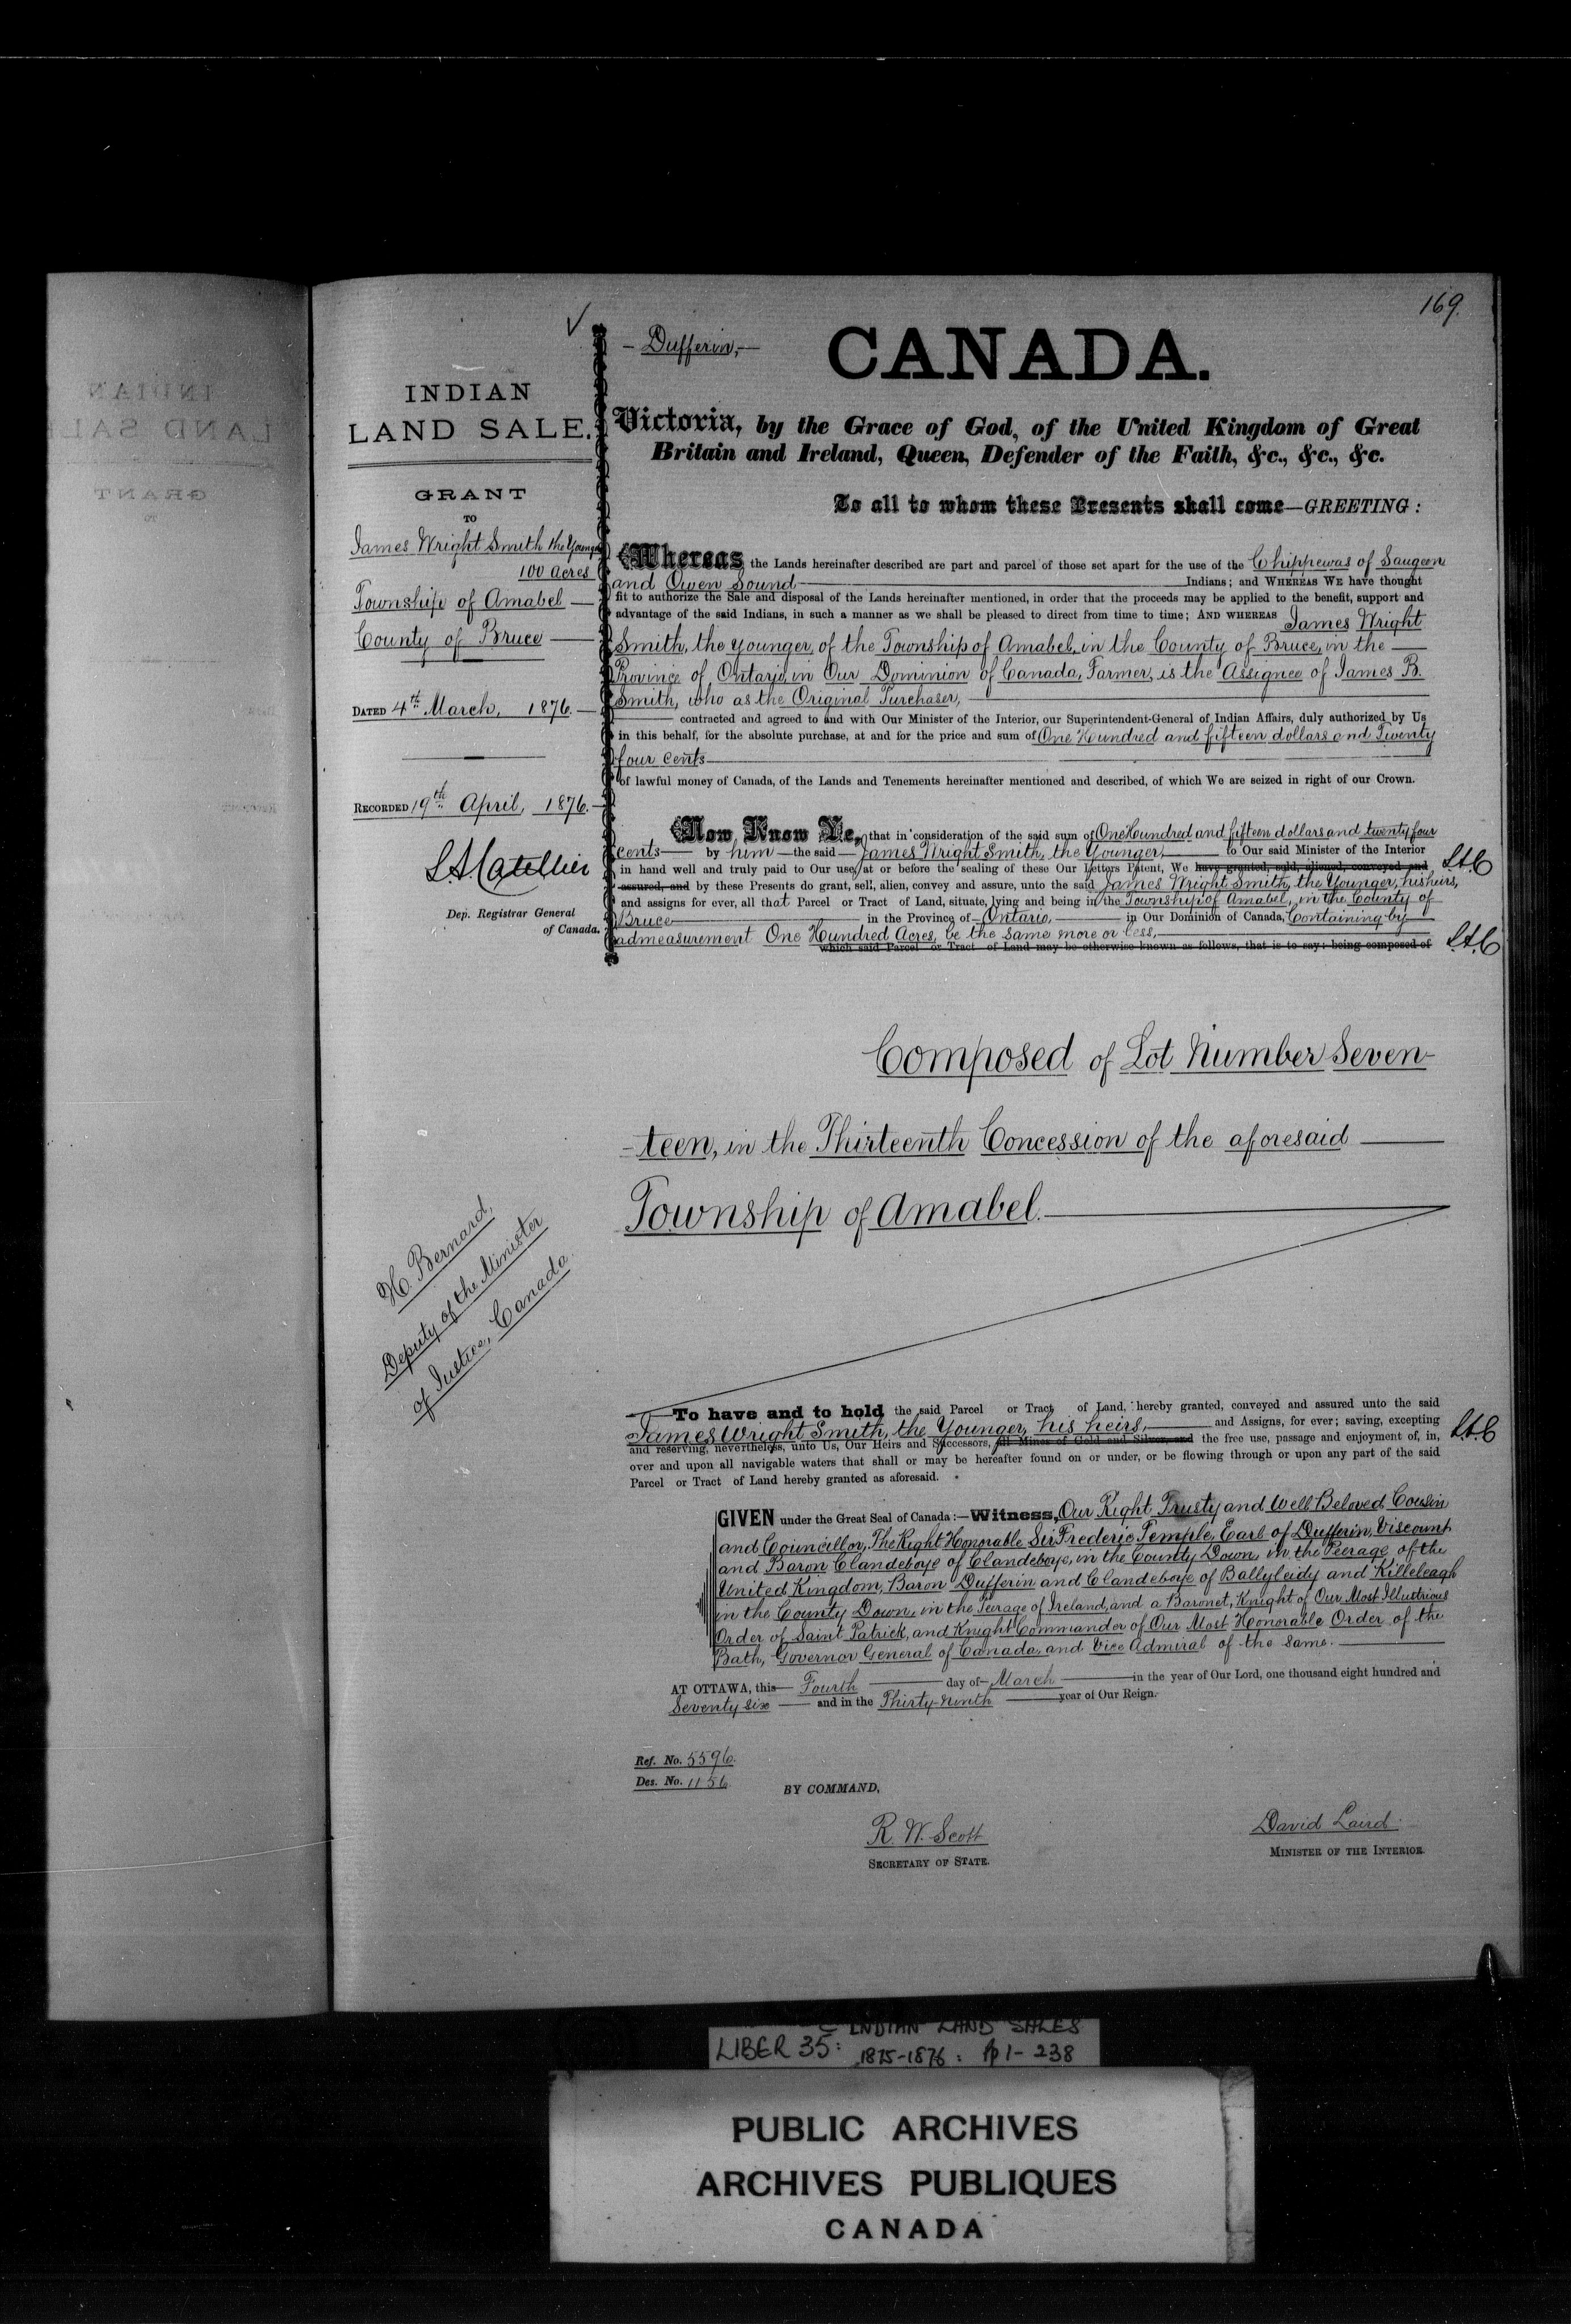 169.
- Dufferin, -
CANADA.
INDIAN
LAND SALE.
GRANT
TO
James Wright Smith the Younger
100 Acres
Township of Amabel
County of Bruce
DATED 4th March, 1876.
RECORDED 19th April, 1876.
L.A. Catellier
Dep. Registrar General
of Canada.
H. Bernard,
Deputy of the Minister
of Justice, Canada.
Victoria, by the Grace of God, of the United Kingdom of Great
Britain and Ireland, Queen, Defender of the Faith, &c., &c., &c.
To all to whom these Presents shall come—GREETING :
Whereas the Lands hereinafter described are part and parcel of those set apart for the use of the Chippewas of Saugeen
and Owen Sound Indians; and WHEREAS WE have thought
fit to authorize the Sale and disposal of the Lands hereinafter mentioned, in order that the proceeds may be applied to the benefit, support and
advantage of the said Indians, in such a manner as we shall be pleased to direct from time to time; AND WHEREAS James Wright
Smith, the younger, of the Township of Amabel, in the County of Bruce, in the
Province of Ontario, in Our Dominion of Canada, Farmer, is the Assignee of James B.
Smith, who as the Original Purchaser,
contracted and agreed to and with Our Minister of the Interior, our Superintendent-General of Indian Affairs, duly authorized by Us
in this behalf, for the absolute purchase, at and for the price and sum of One Hundred and fifteen dollars and Twenty
four cents
of lawful money of Canada, of the Lands and Tenements hereinafter mentioned and described, of which We are seized in right of our Crown.
Now Know Ye, that in consideration of the said sum of One Hundred and fifteen dollars and twenty four
cents by him the said James Wright Smith, the Younger, to Our said Minister of the Interior
in hand well and truly paid to Our use, at or before the sealing of these Our Letters Patent, We have granted, sold, aliened, conveyed and L.A.C
assured, and by these Presents do grant, sell, alien, convey and assure, unto the said James Wright Smith, the Younger, his heirs,
and assigns for ever, all that Parcel or Tract of Land, situate, lying and being in the Township of Amabel, in the County of
Bruce in the Province of Ontario, in Our Dominion of Canada, Containing by
admeasurement One Hundred Acres, be the same more or less,
which said Parcel or Tract of Land may be otherwise known as follows, that is to say: being composed of L.A.C
Composed of Lot Number Seven-
-teen, in the Thirteenth Concession of the aforesaid
Township of Amabel.
To have and to hold the said Parcel or Tract of Land, hereby granted, conveyed and assured unto the said
James Wright Smith, the Younger, his heirs, and Assigns, for ever; saving, excepting
and reserving, nevertheless, unto Us, Our Heirs and Successors, all Mines of Gold and Silver, and the free use, passage and enjoyment of, in, L.A.C
over and upon all navigable waters that shall or may be hereafter found on or under, or be flowing through or upon any part of the said
Parcel or Tract of Land hereby granted as aforesaid.
GIVEN under the Great Seal of Canada:—Witness, Our Right Trusty and Well Beloved Cousin
and Councillor, The Right Honorable Sir Frederic Temple, Earl of Dufferin, Viscount
and Baron Clandeboye of Clandeboye, in the County Down, in the Peerage of the
United Kingdom, Baron Dufferin and Clandeboye of Ballyleidy and Killeleagh
in the County Down, in the Peerage of Ireland, and a Baronet, Knight of Our Most Illustrious
Order of Saint Patrick, and Knight Commander of Our Most Honorable Order of the
Bath, Governor General of Canada, and Vice Admiral of the same.
AT OTTAWA, this Fourth day of March in the year of Our Lord, one thousand eight hundred and
Seventy six and in the Thirty-ninth year of Our Reign.
Ref. No. 5596.
Des. No. 1156.
BY COMMAND,
R. W. Scott
SECRETARY OF STATE.
David Laird.
MINISTER OF THE INTERIOR.
LIBER 35: INDIAN LAND SALES
1875-1876: pp 1-238
PUBLIC ARCHIVES
ARCHIVES PUBLIQUES
CANADA